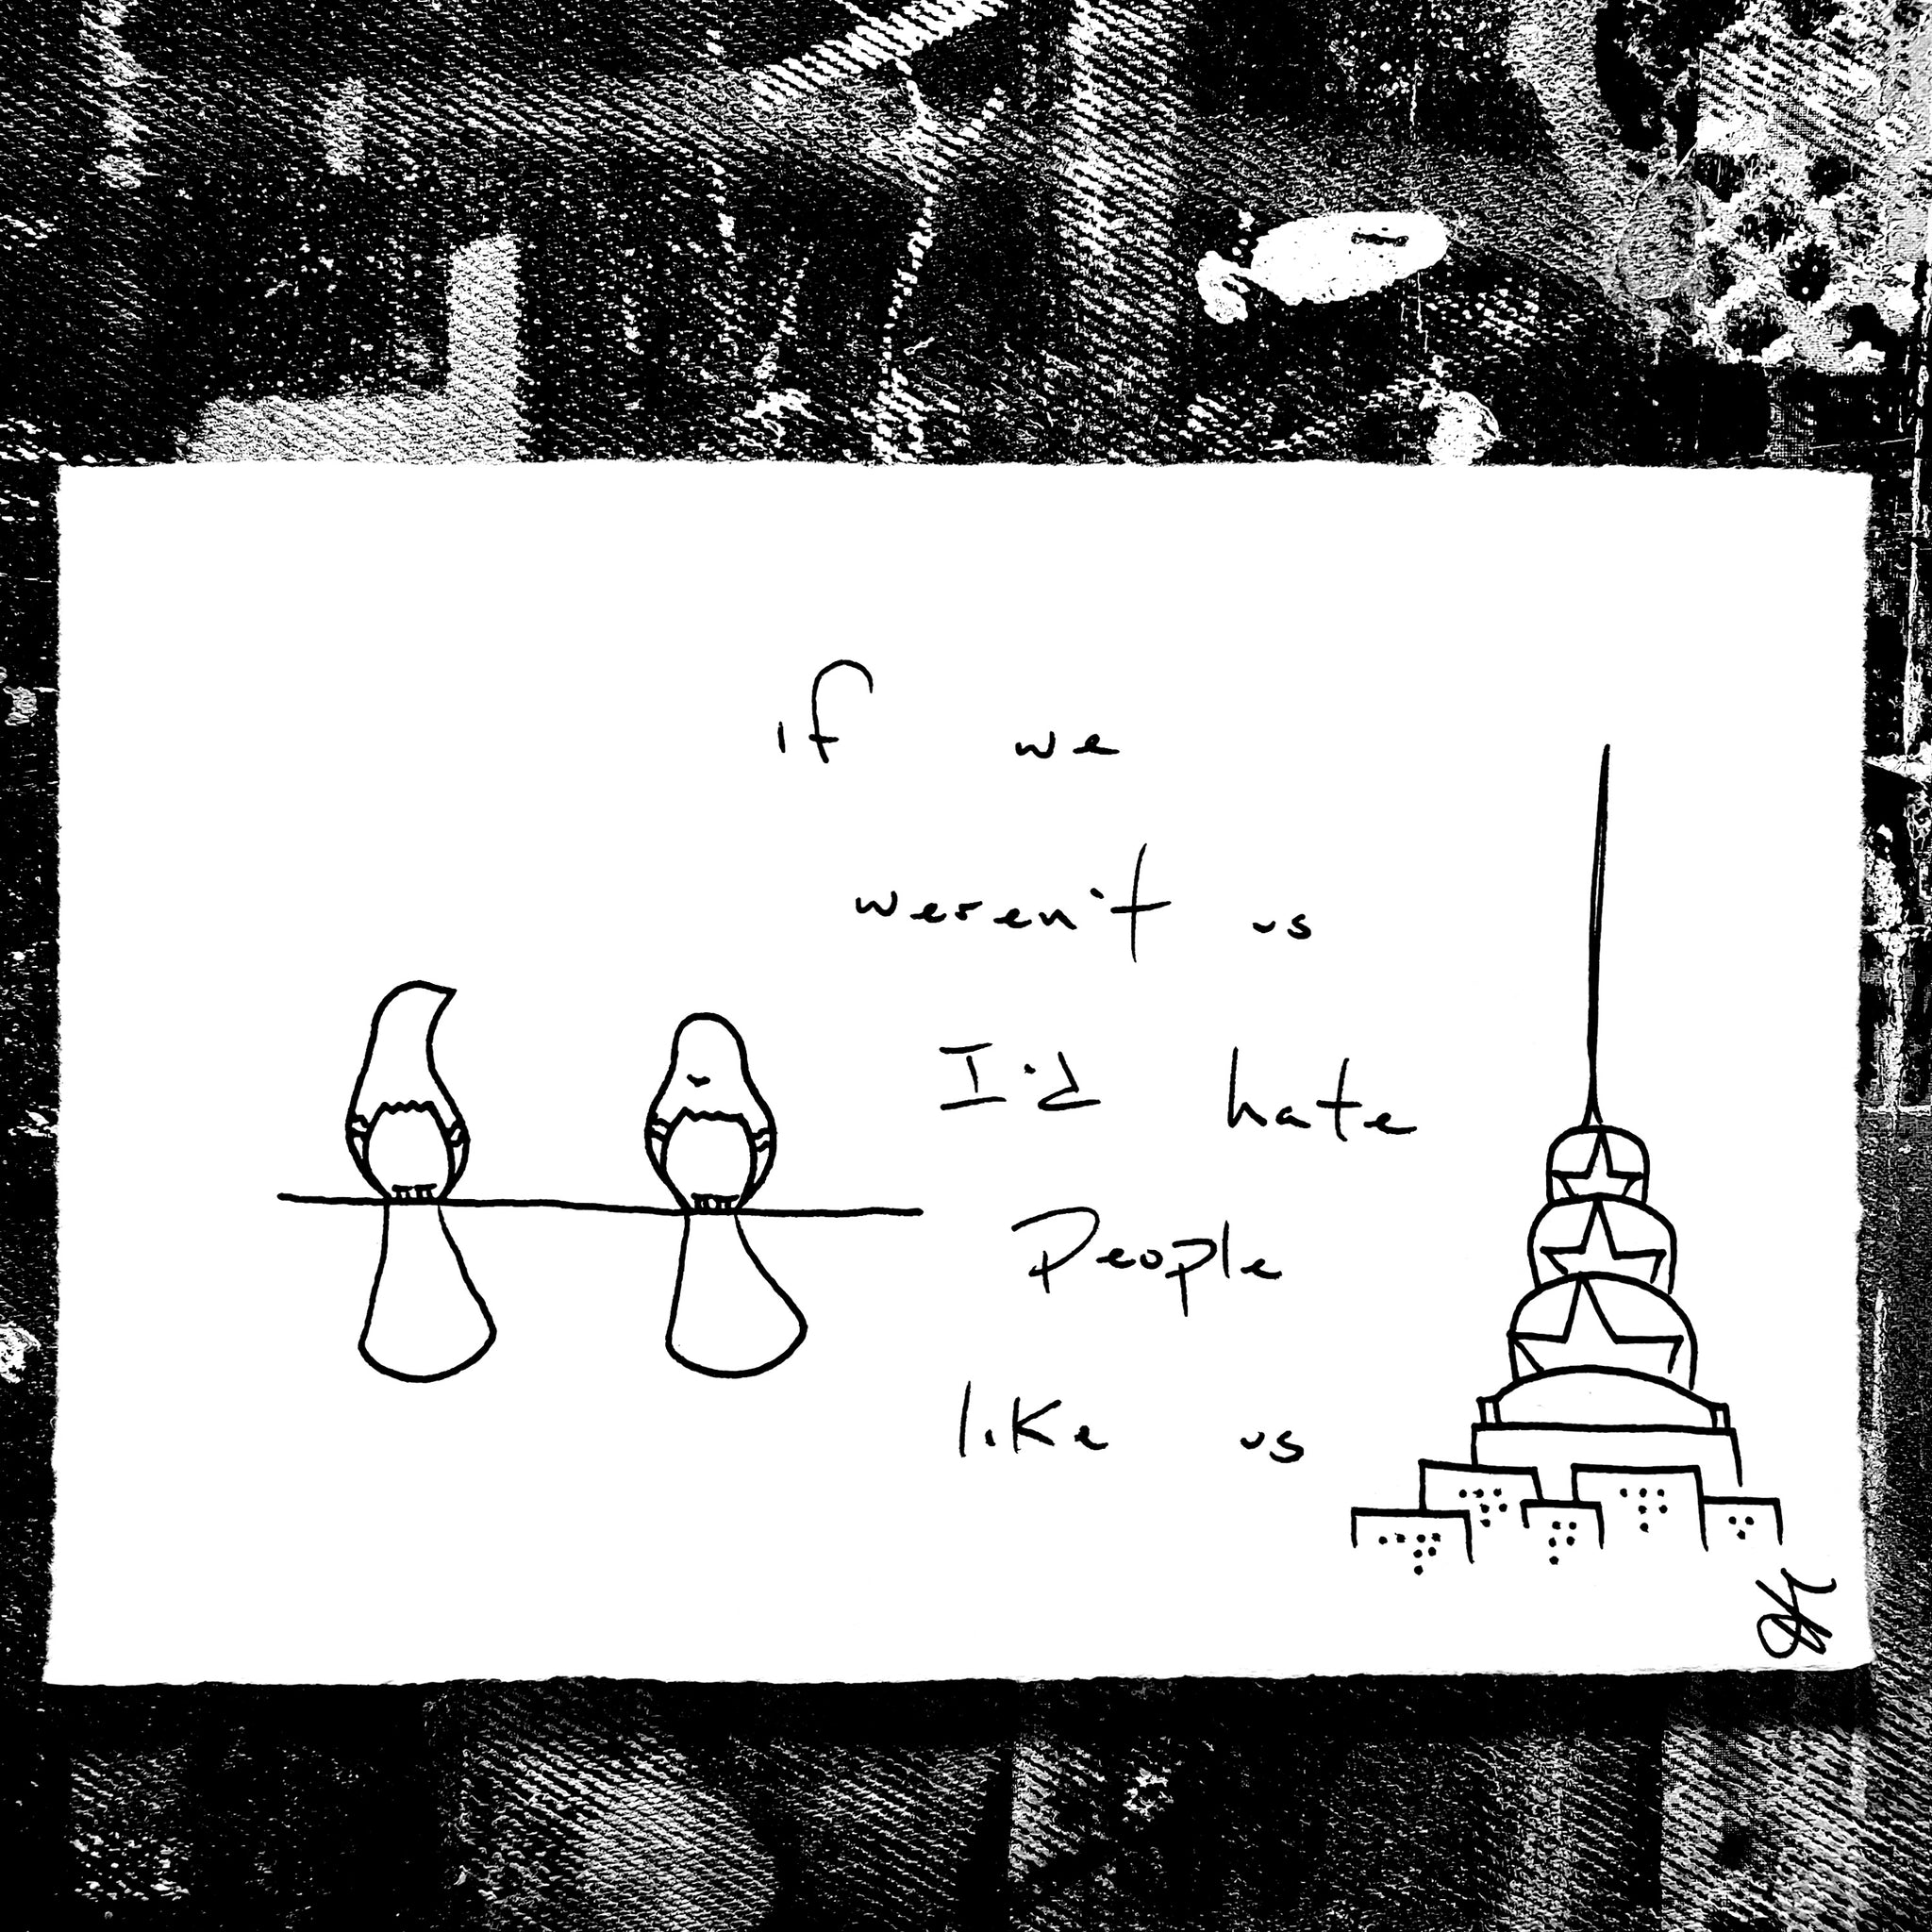 if we
weren't us
I'd hate
People
like us